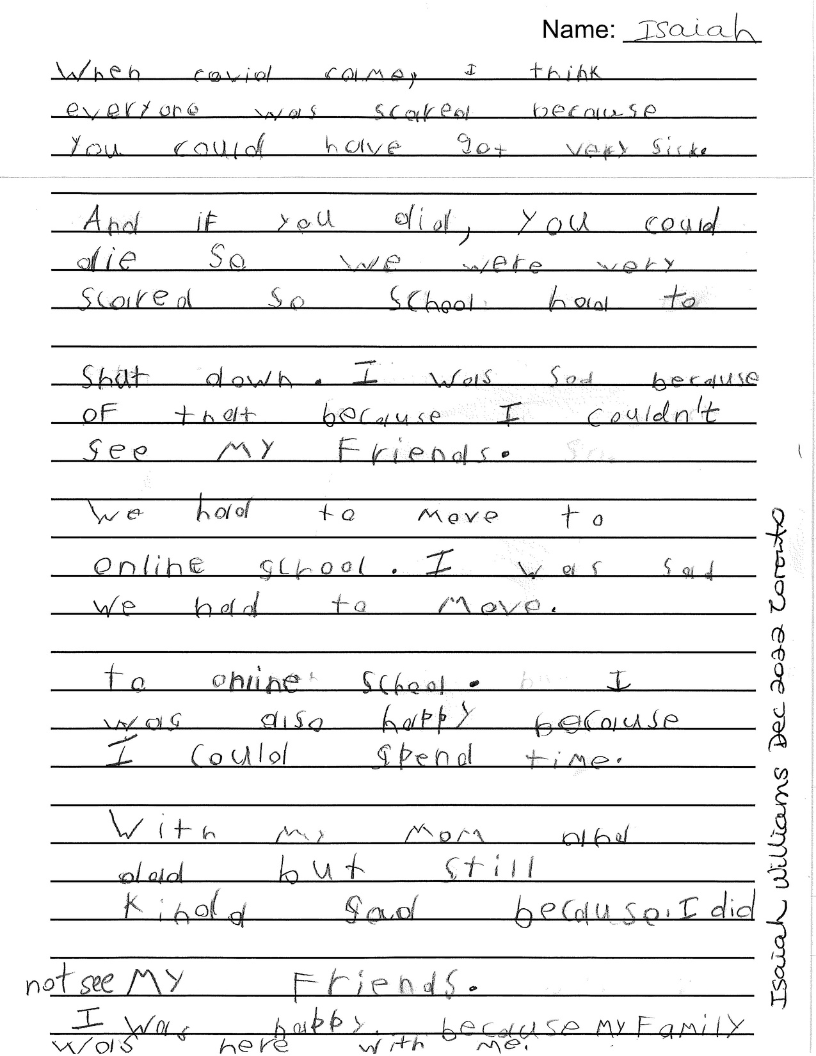 Name: Isaiah
When covid came, I think
everyone was scared because
You could have got very sick.
And if you did, you could
die so we were very
scared so school had to
shut down. I was sad because
of that because I couldn't
see my Friends.
We had to move to
online school. I was sad
we had to move.
to online school. I
was also happy because
I could spend time.
With my mom and
dad but still
Kinda sad because. I did
not see MY Friends.
I was happy. because my Family
was here with me.
Isaiah Williams Dec 2022 Toronto